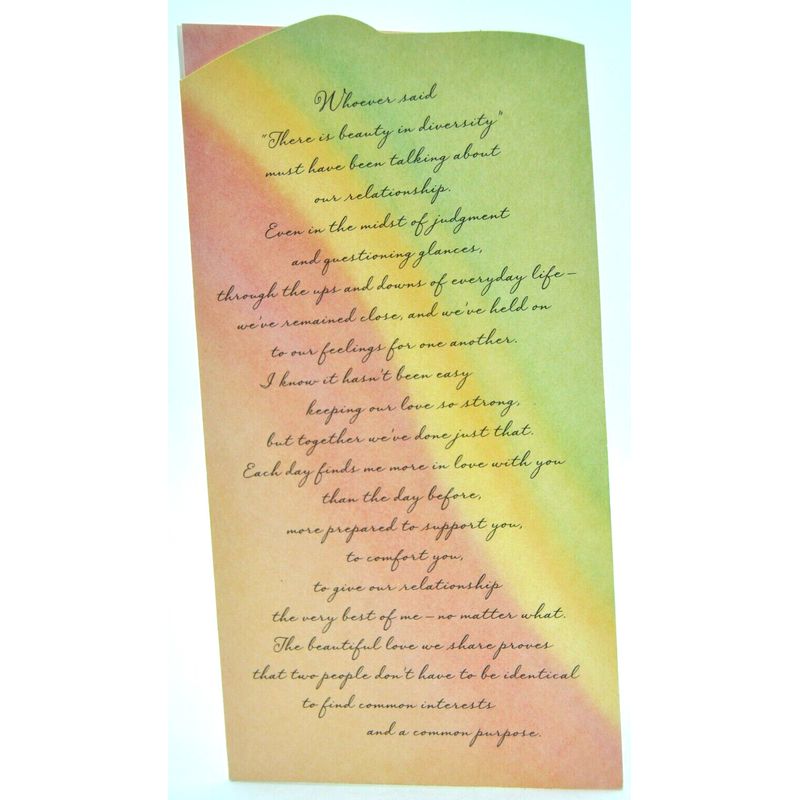 Whoever said
"There is beauty in diversity"
must have been talking about
our relationship.
Even in the midst of judgment
and questioning glances,
through the ups and downs of everyday life –
we've remained close, and we've held on
to our feelings for one another.
I know it hasn't been easy
keeping our love so strong,
but together we've done just that.
Each day finds me more in love with you
than the day before,
more prepared to support you,
to comfort you,
to give our relationship
the very best of me – no matter what.
The beautiful love we share proves
that two people don't have to be identical
to find common interests
and a common purpose.